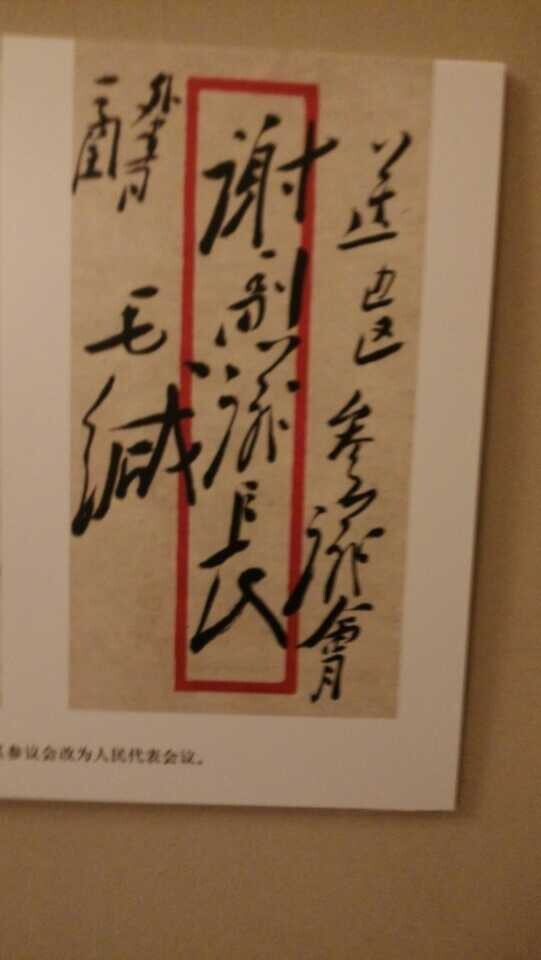 送边区参议会
谢副议长
毛缄
外书
一本
参议会改为人民代表会议。